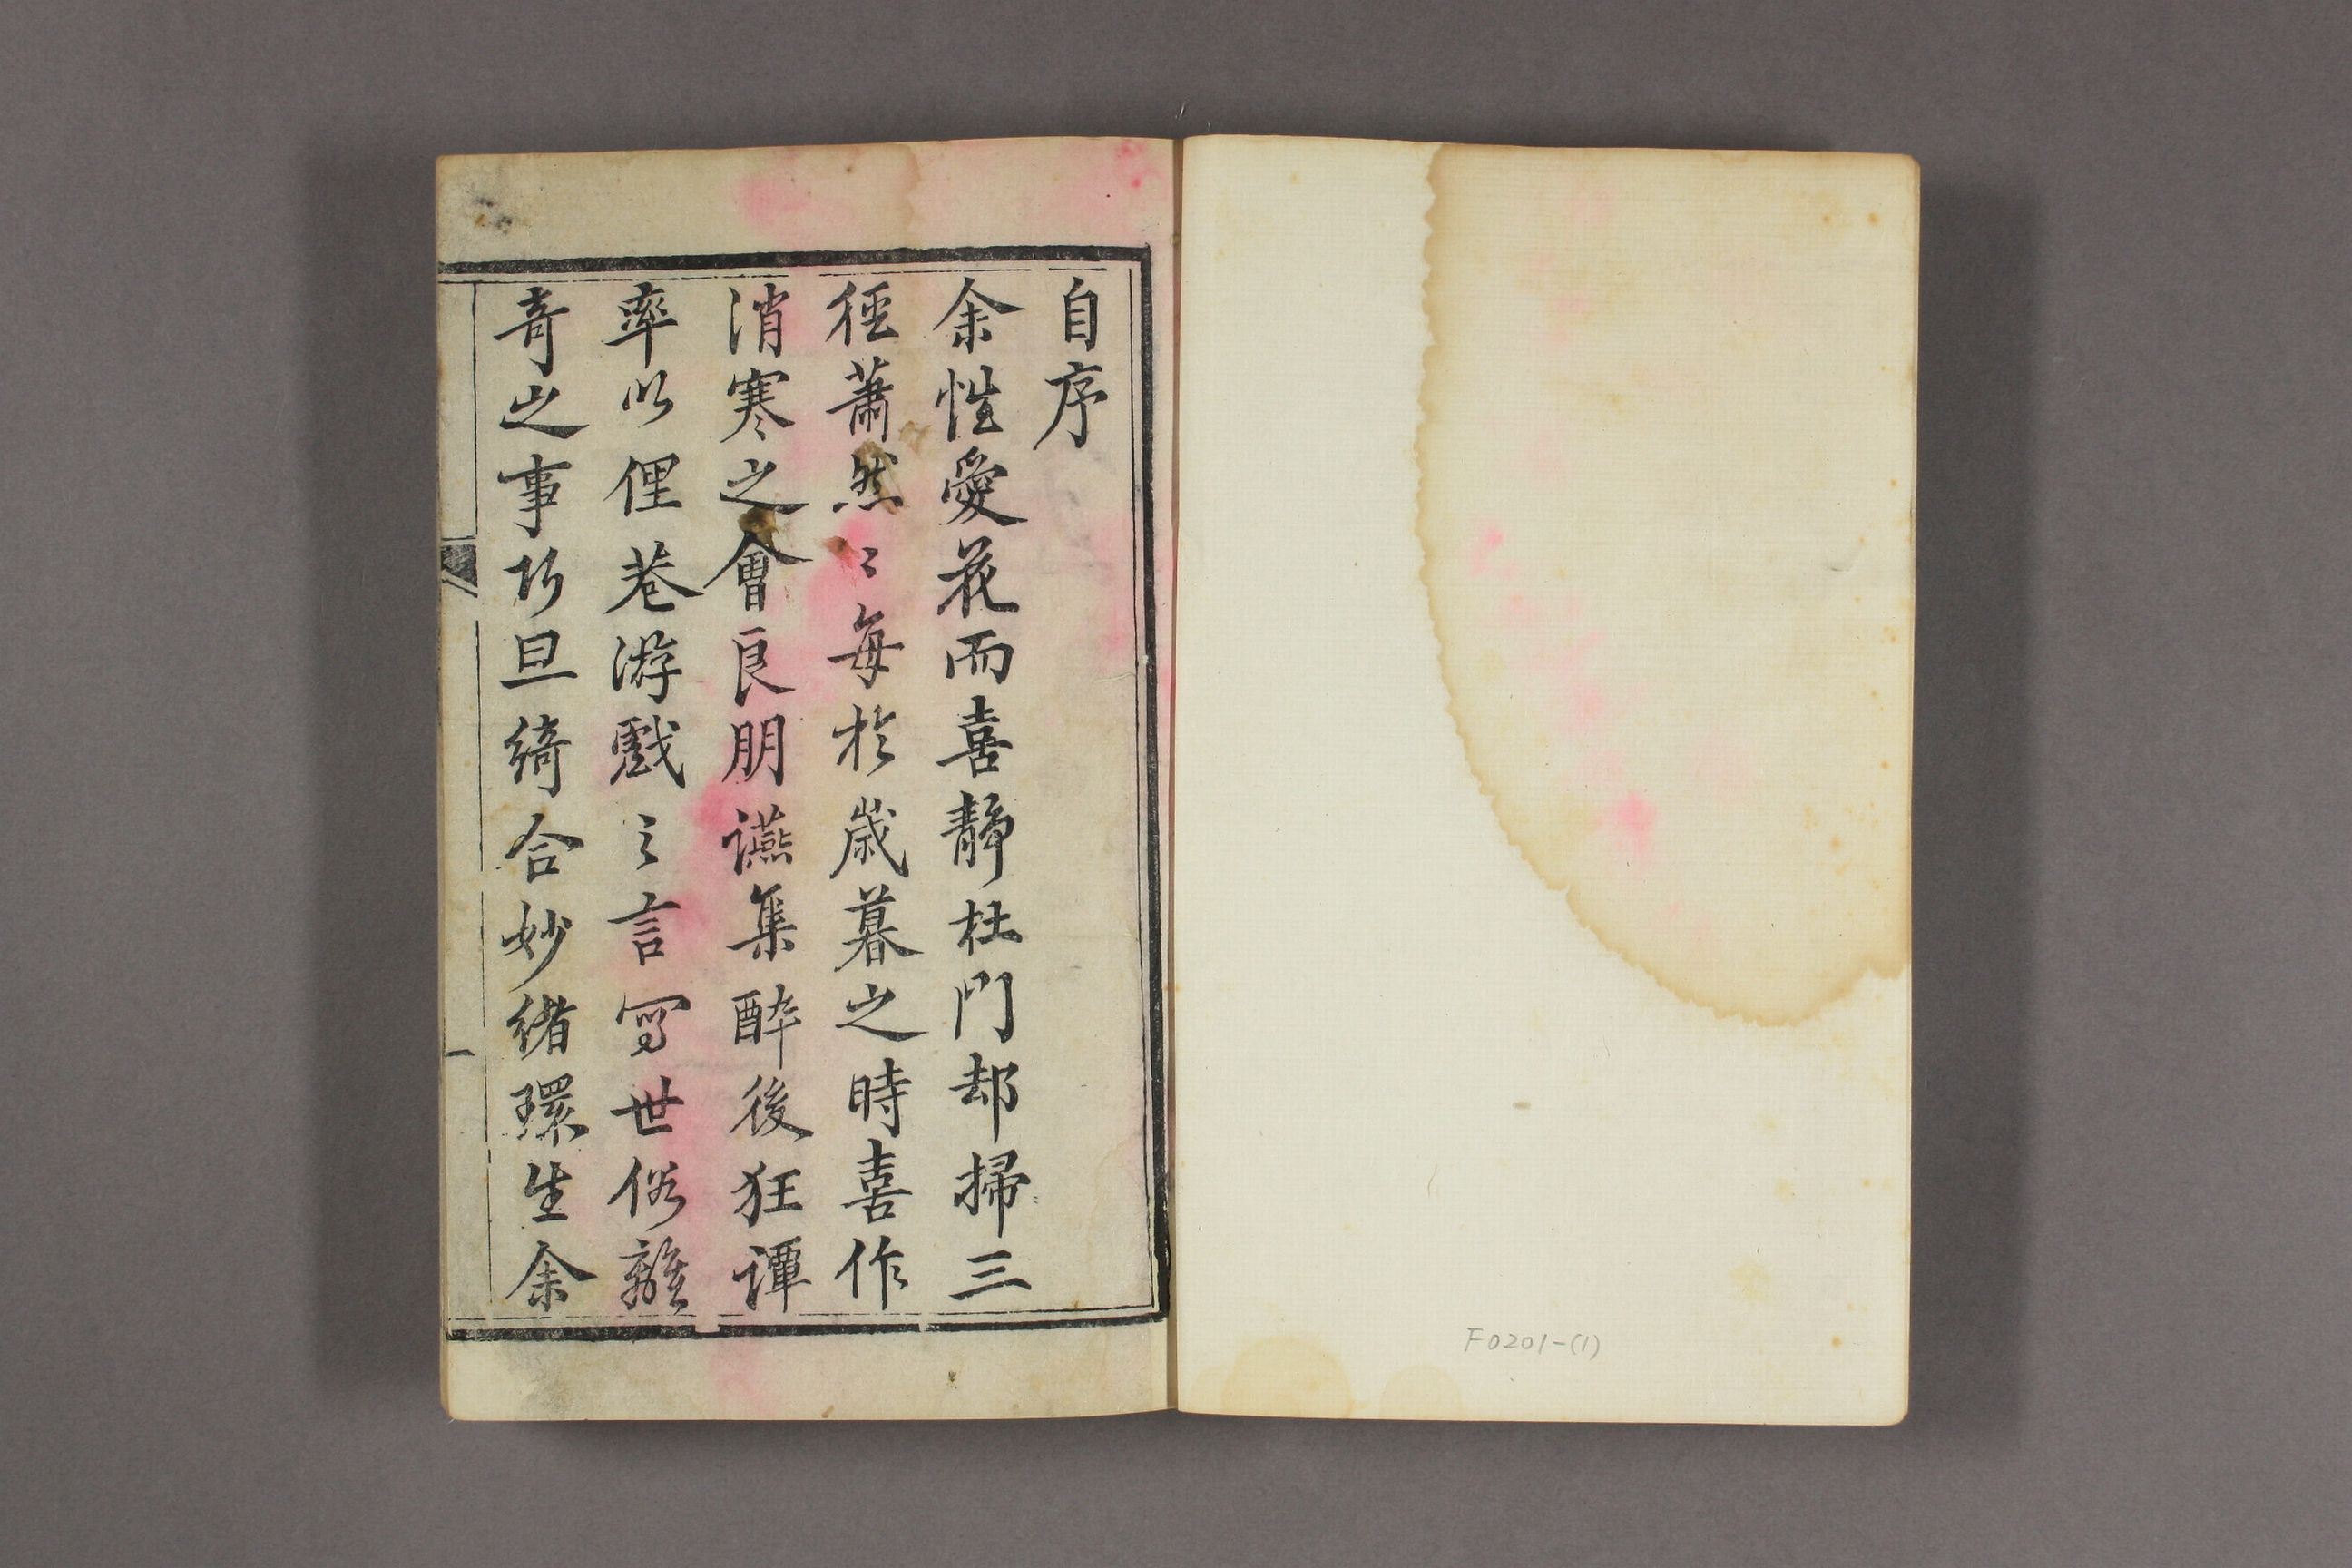 自序
余性愛花而喜靜杜門却掃三
徑蕭然〻每於歲暮之時喜作
消寒之會良朋讌集醉後狂譚
率以俚巷游戲之言寫世俗離
奇之事巧且綺合妙緒環生余
一
F0201-(1)